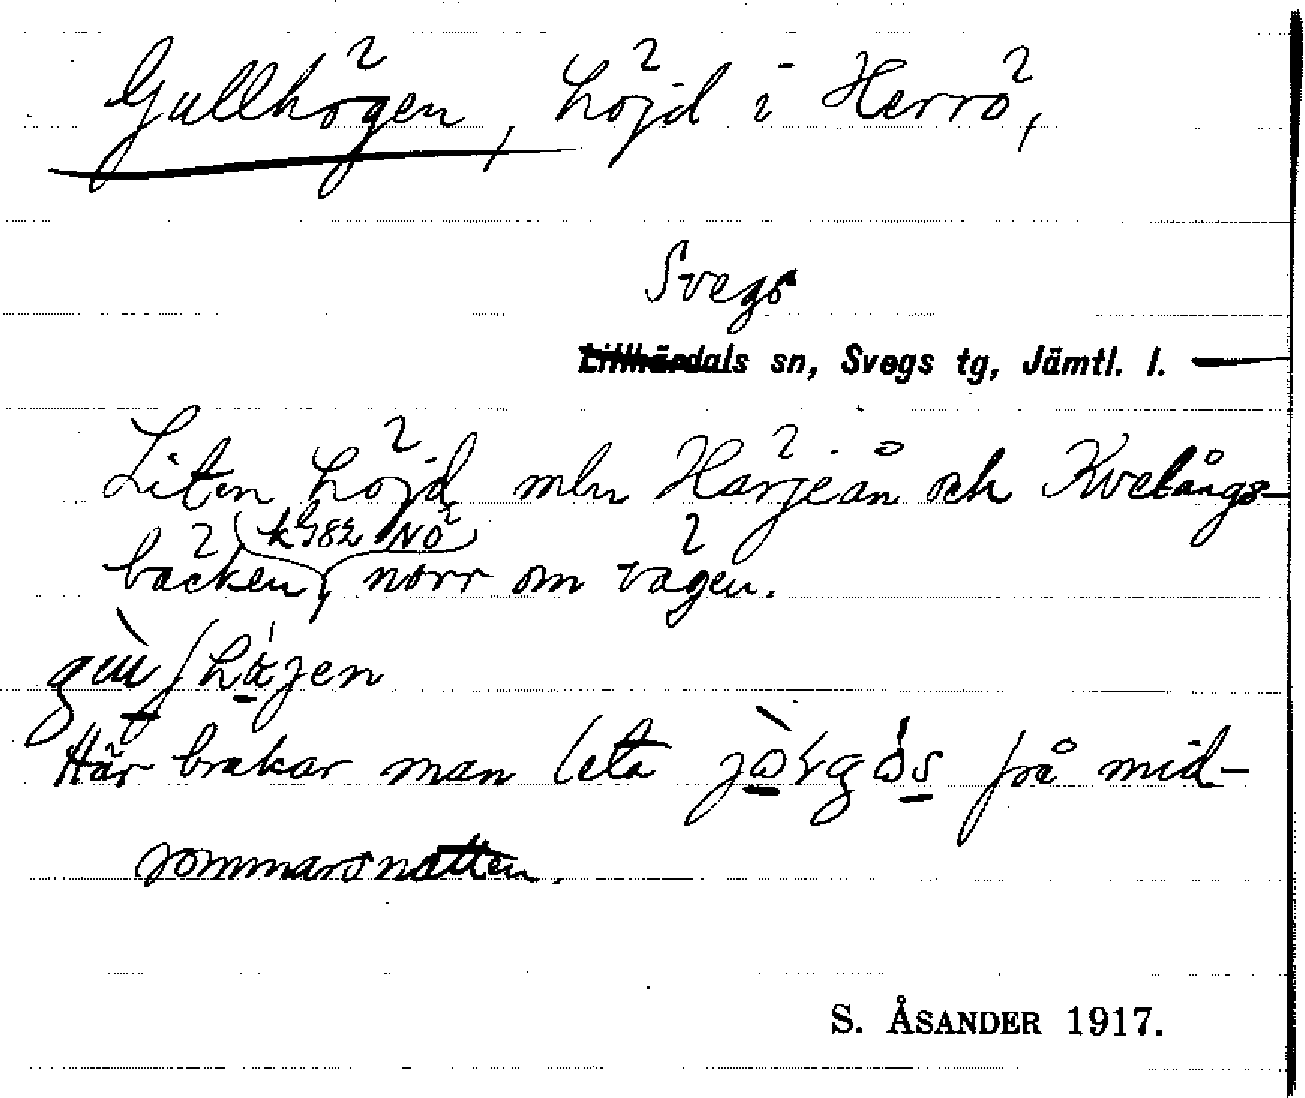 Gullhögen, höjd i Herrö,
Svegs
Lillhärdals sn, Svegs tg, Jämtl. l.
Liten höjd mln Härjeån och Kvelångs-
k 982 NÖ
bäcken, norr om vägen.
högen
Här brukar man leta på mid-
sommarsnatten.
S. ÅSANDER 1917.